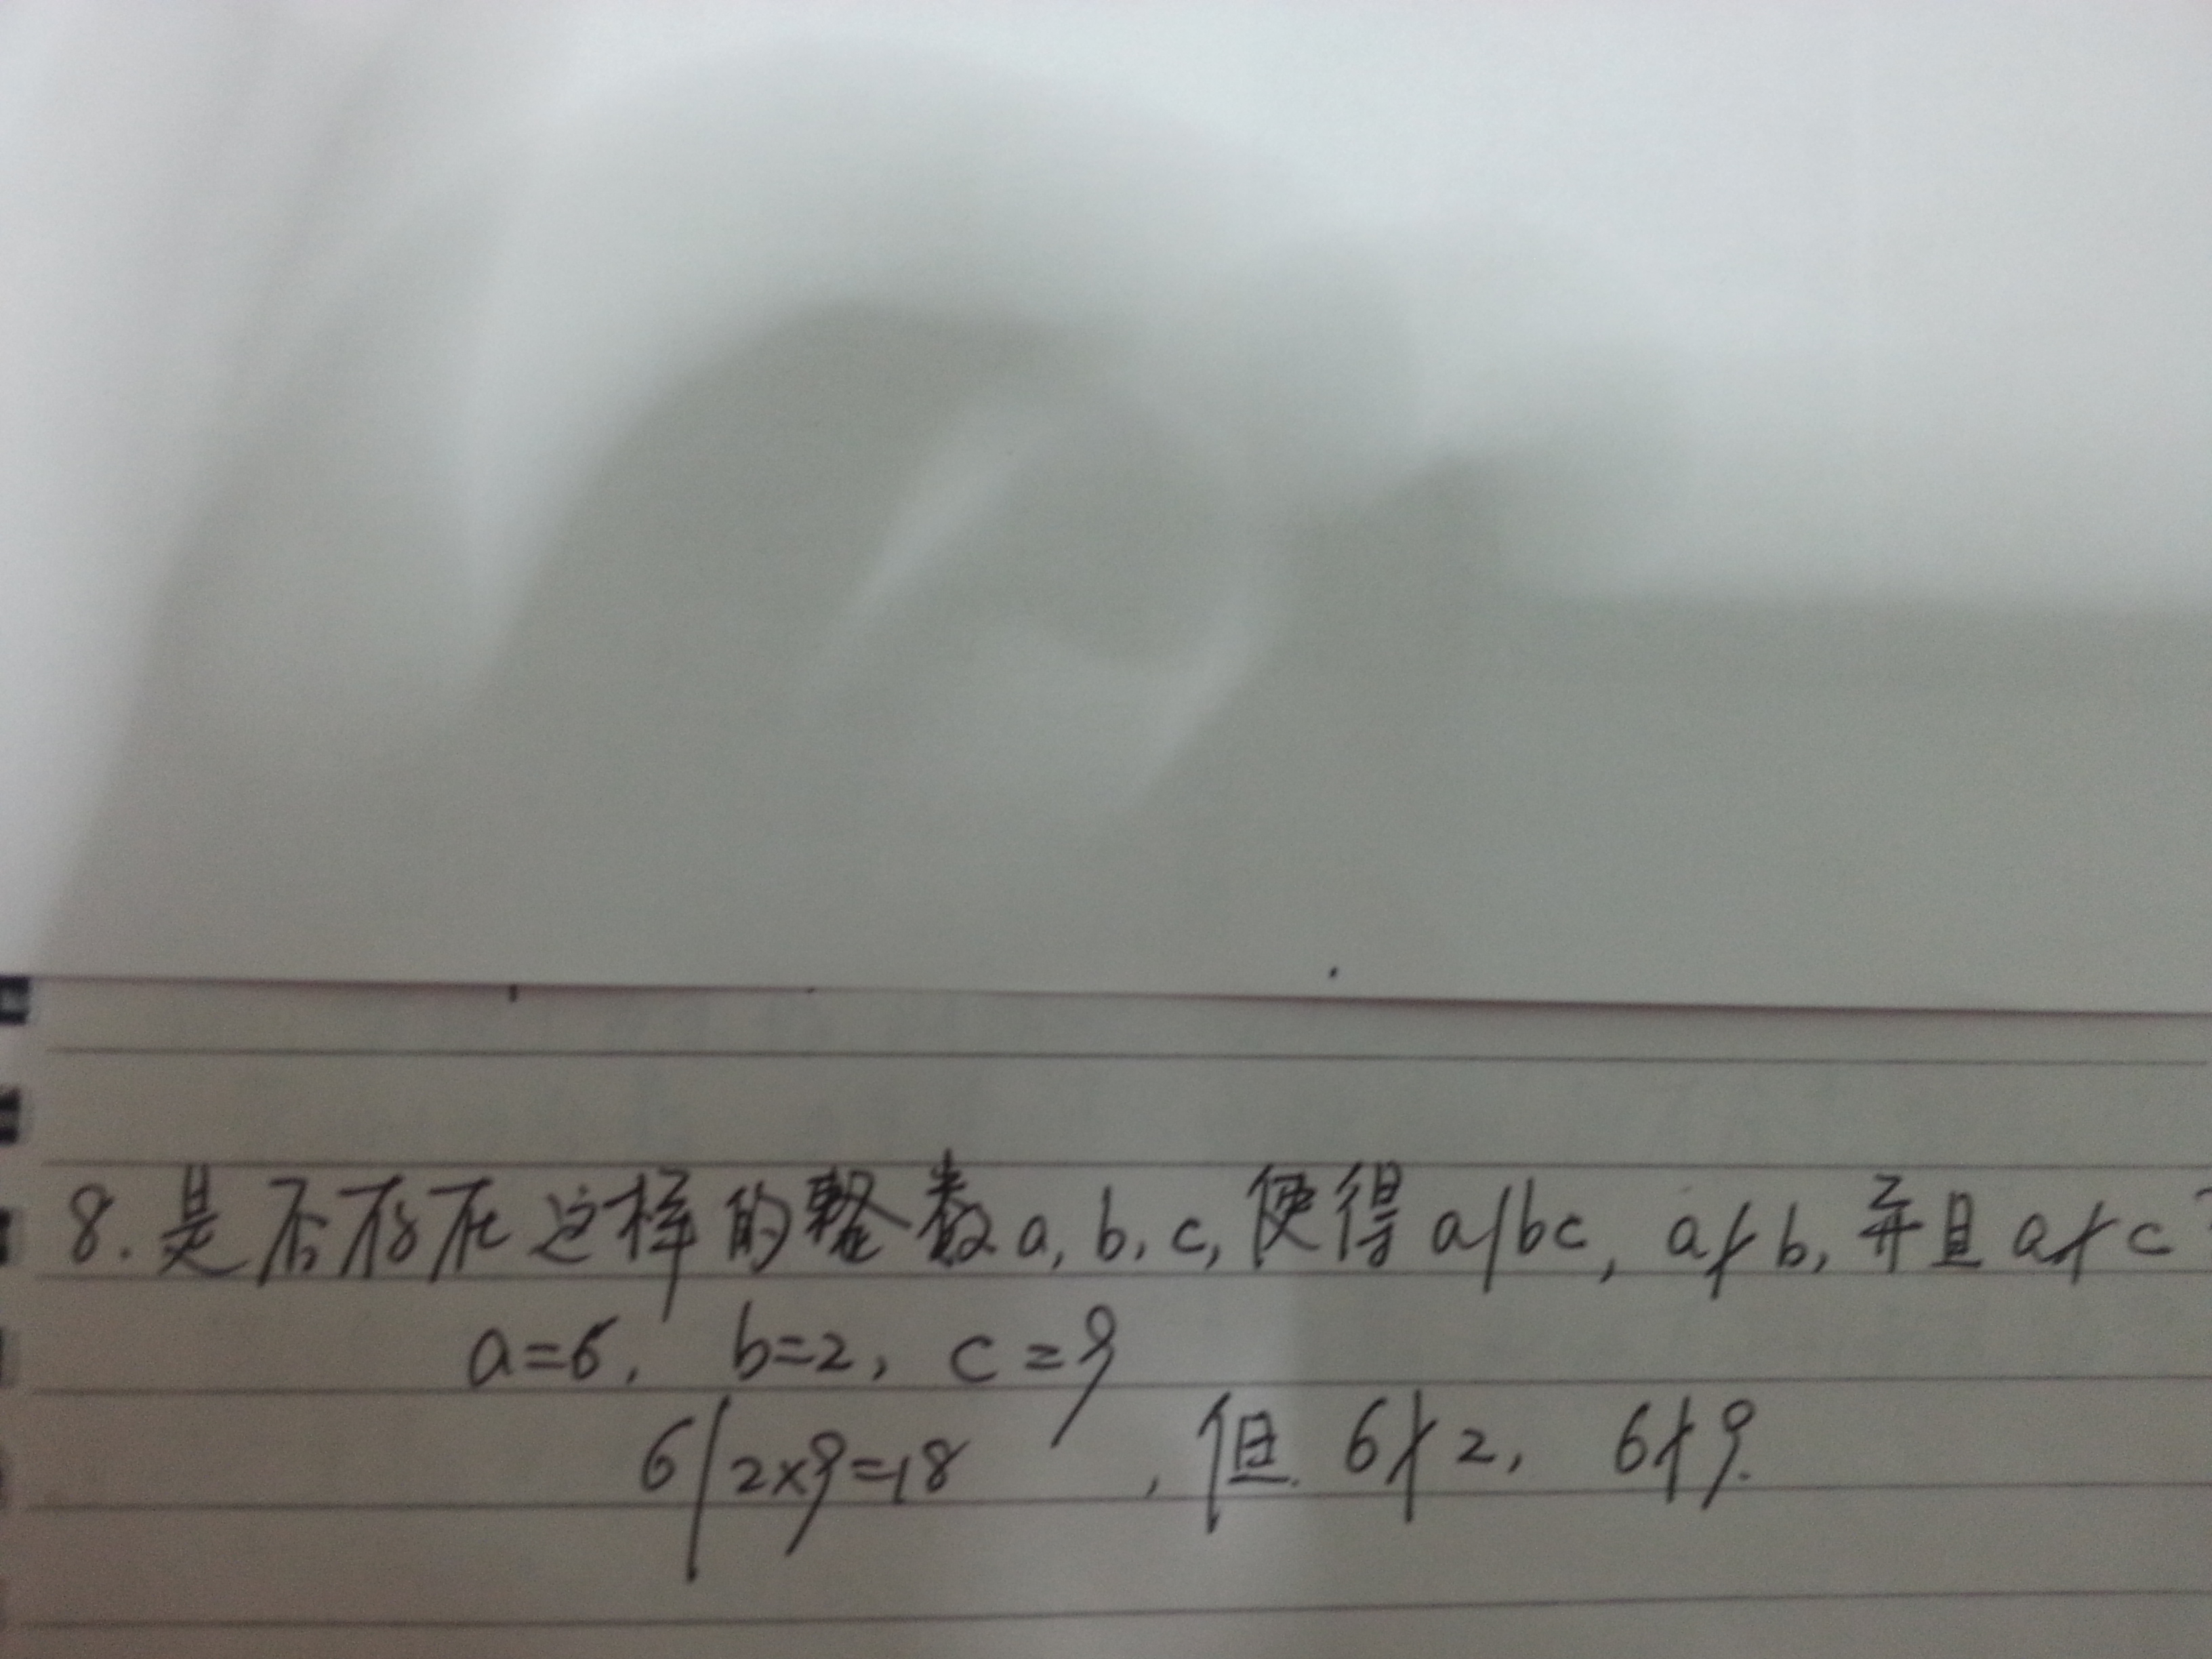 8.是否存在这样的整数a,b,c,使得a|bc, a∤b,并且a∤c?
a=6, b=2, c=9
6|2×9=18 ,但 6∤2, 6∤9.